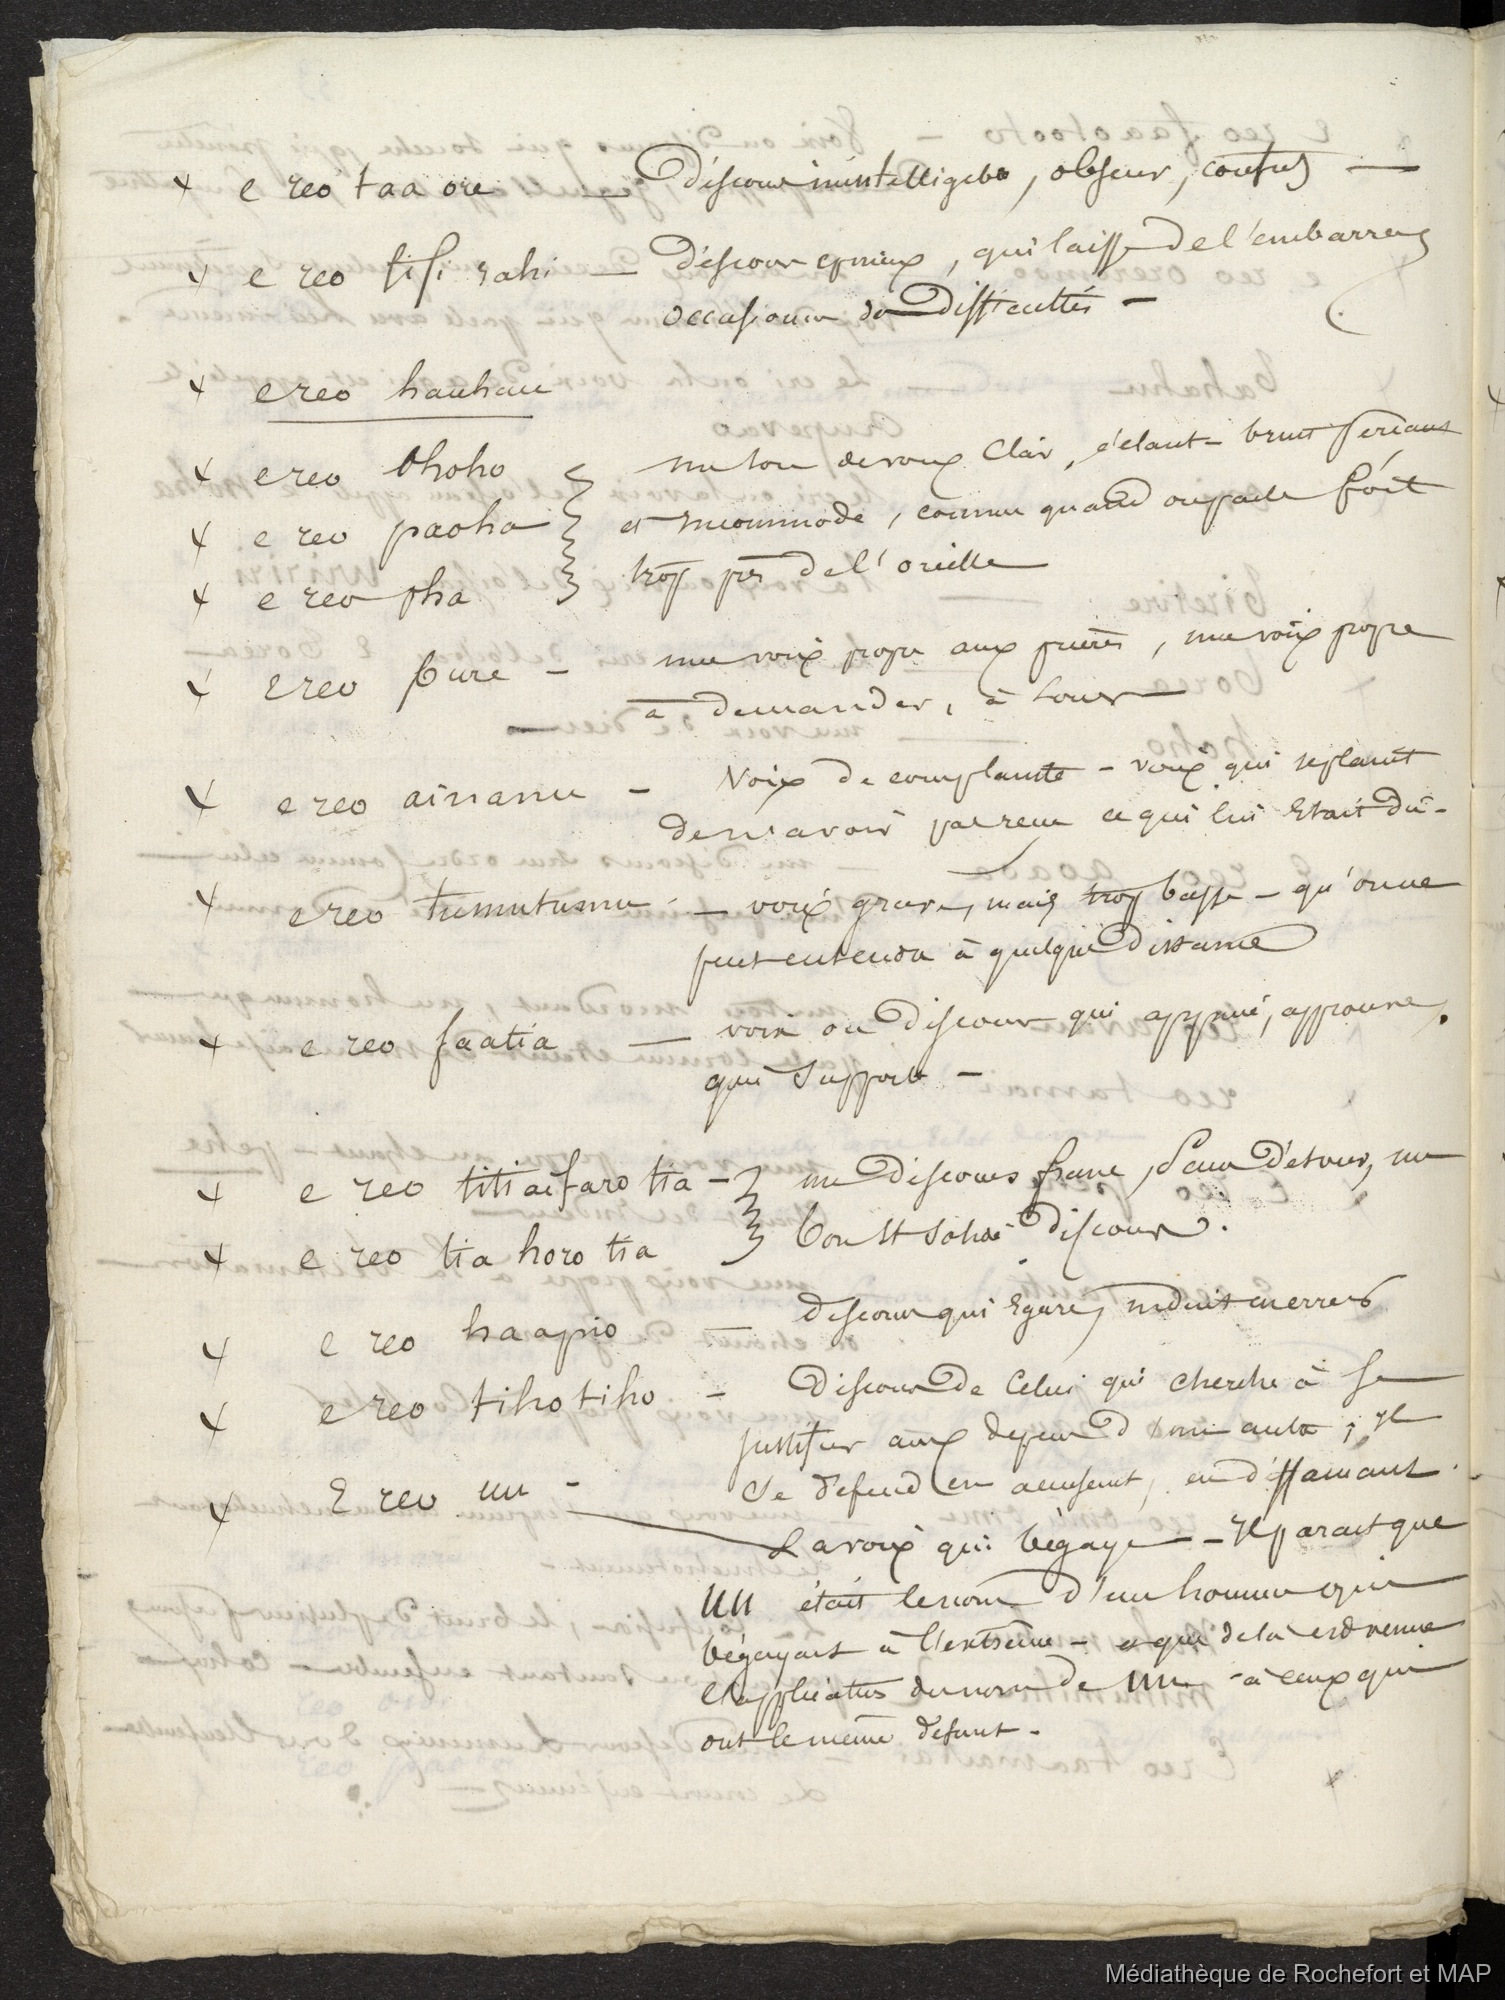 x e reo taa ore — discour inintelligible, obscur, confus —
x e reo fifi rahi — discour epineux, qui laisse de l'embarras
occasionne des difficultés —
x e reo hauhau
x e reo ohoho
un son de voix clair, éclant - bruit perçant
x e reo paoha
et incommode, comme quand on parle fort
x e reo pha
trop prs de l'oreille
x e reo pure — une voix propre aux prieres, une voix propre
à demander, à louer
x e reo ainanu — Voix de complainte — voix qui se plaint
de n'avoir pas reçu ce qui lui etait dû -
x e reo tumutumu — voix grave, mais trop basse — qu'on ne
peut entendre à quelque distance
x e reo faatia — voix ou discour qui appuie, approuve,
qui supporte —
x e reo titiaifaro tia — un discours franc, sans détour, un
x e reo tia horo tia bon et solide discour.
x e reo haapio — discour qui egare, induit en erreur
x e reo tihotiho — discour de celui qui cherche à se
justifier aux depens d'un autre, il
se défend en accusant, en diffamant.
x e reo uu — La voix qui bégaye — Il parait que
UU était le nom d'un homme qui
bégayait à l'extrême — et que de la est venue
l'application du nom de uu à ceux qui
ont le même défaut —
Médiathèque de Rochefort et MAP